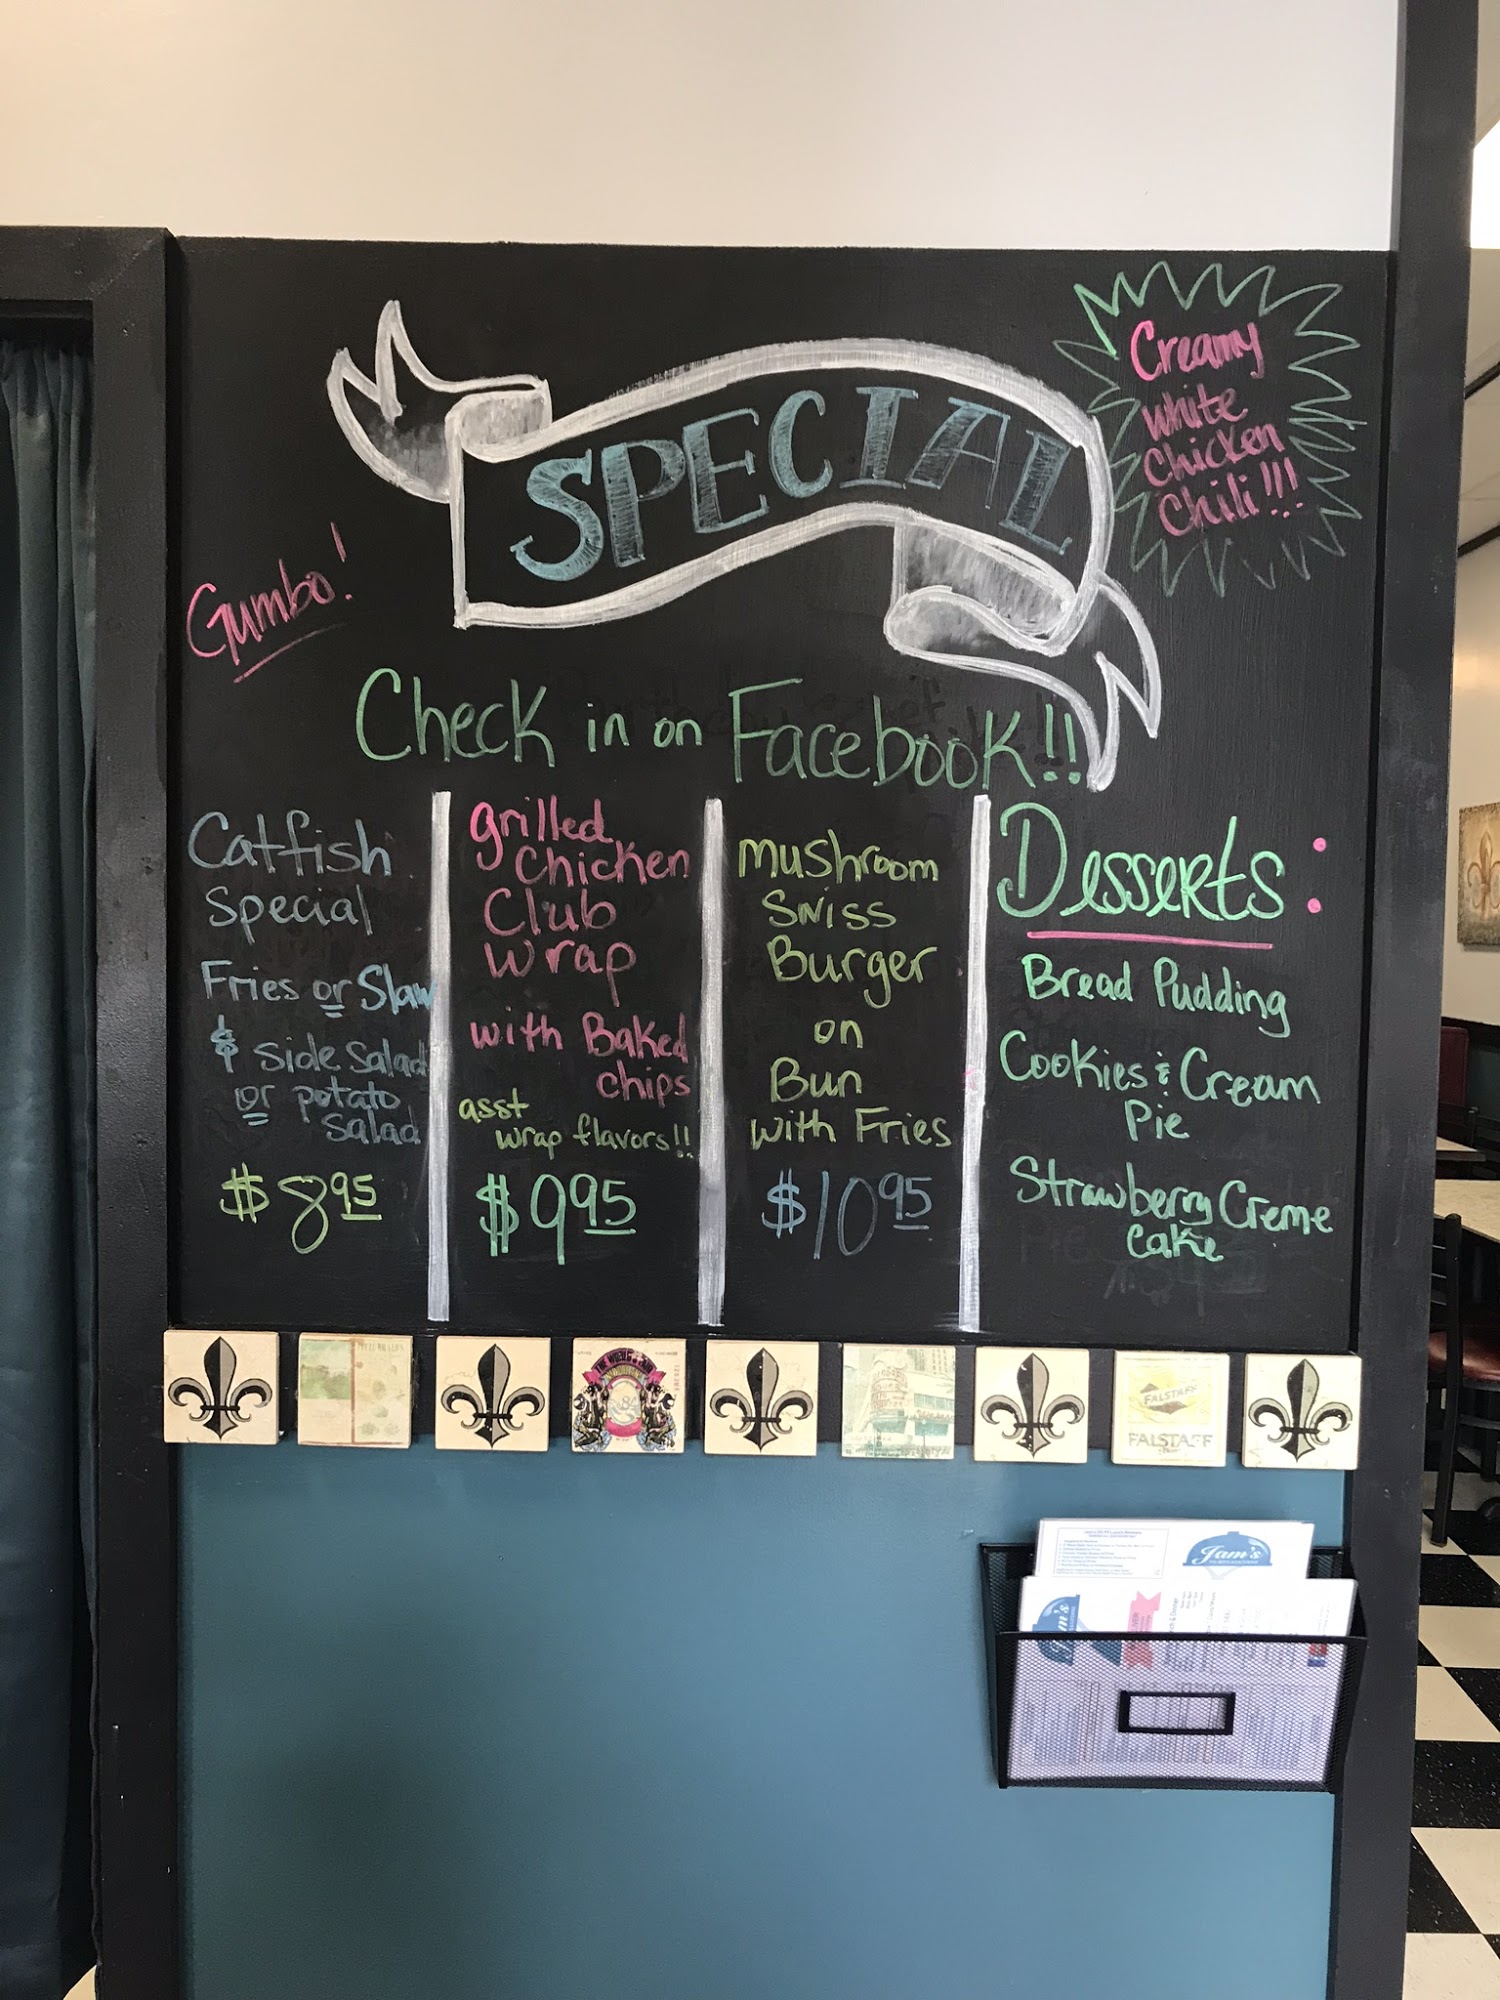 SPECIAL
Creamy
White
Chicken
Chili!!!
Gumbo!
Check in on Facebook!!
Catfish
Special
Fries or Slaw
& Side Salad
or potato
Salad
$8.95
grilled
Chicken
Club
Wrap
with Baked
chips
asst
wrap flavors!!
$9.95
Mushroom
Swiss
Burger
on
Bun
with Fries
$10.95
Desserts:
Bread Pudding
Cookies & Cream
Pie
Strawberry Creme
Cake
FALSTAFF
FALSTAFF
Jam's
Jam's